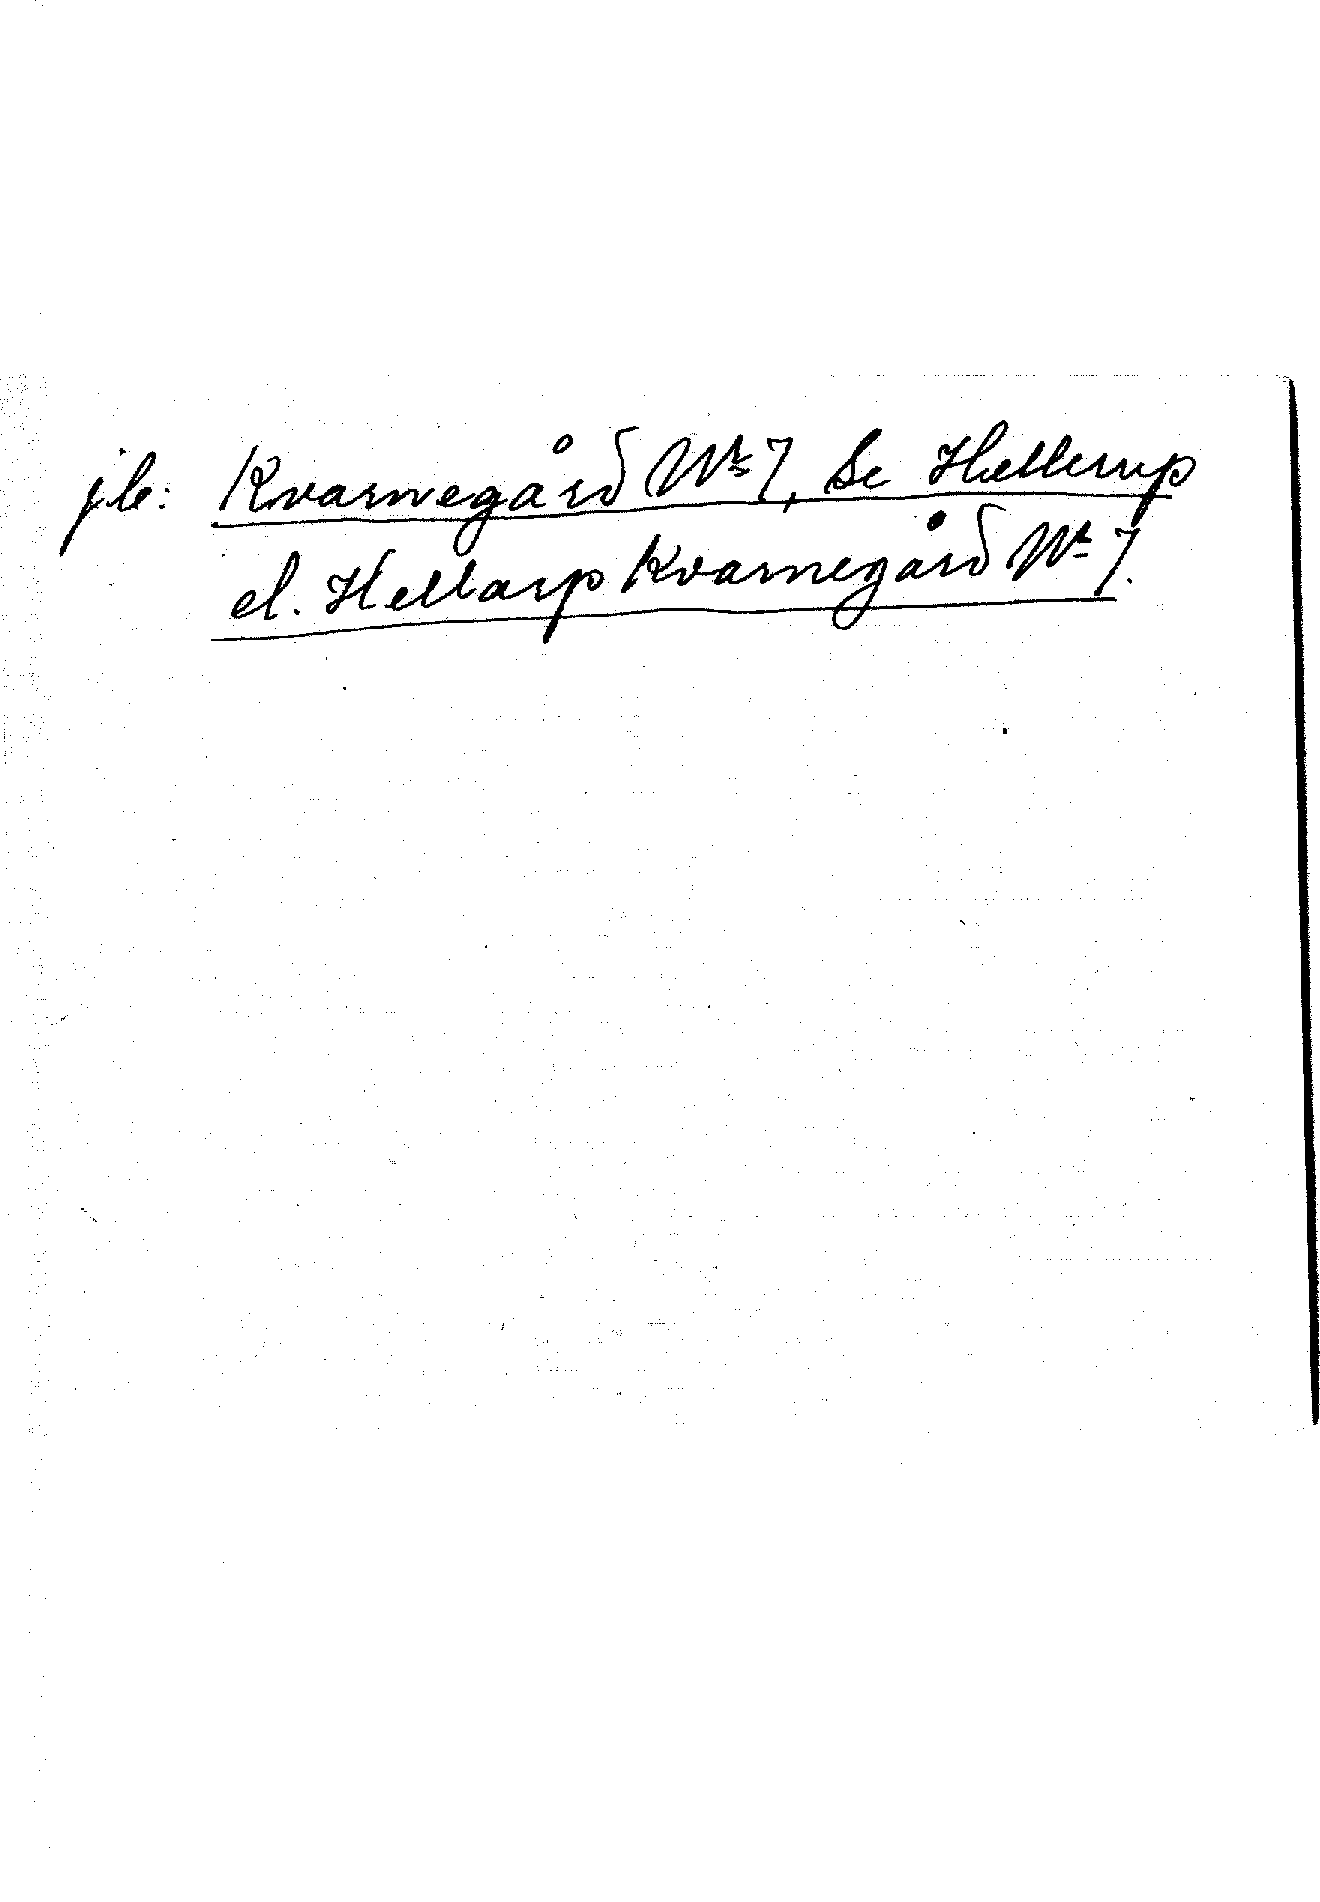 jb: Kvarnegård Nr 7, Se Hellerup
el. Hellarp Kvarnegård Nr 7.